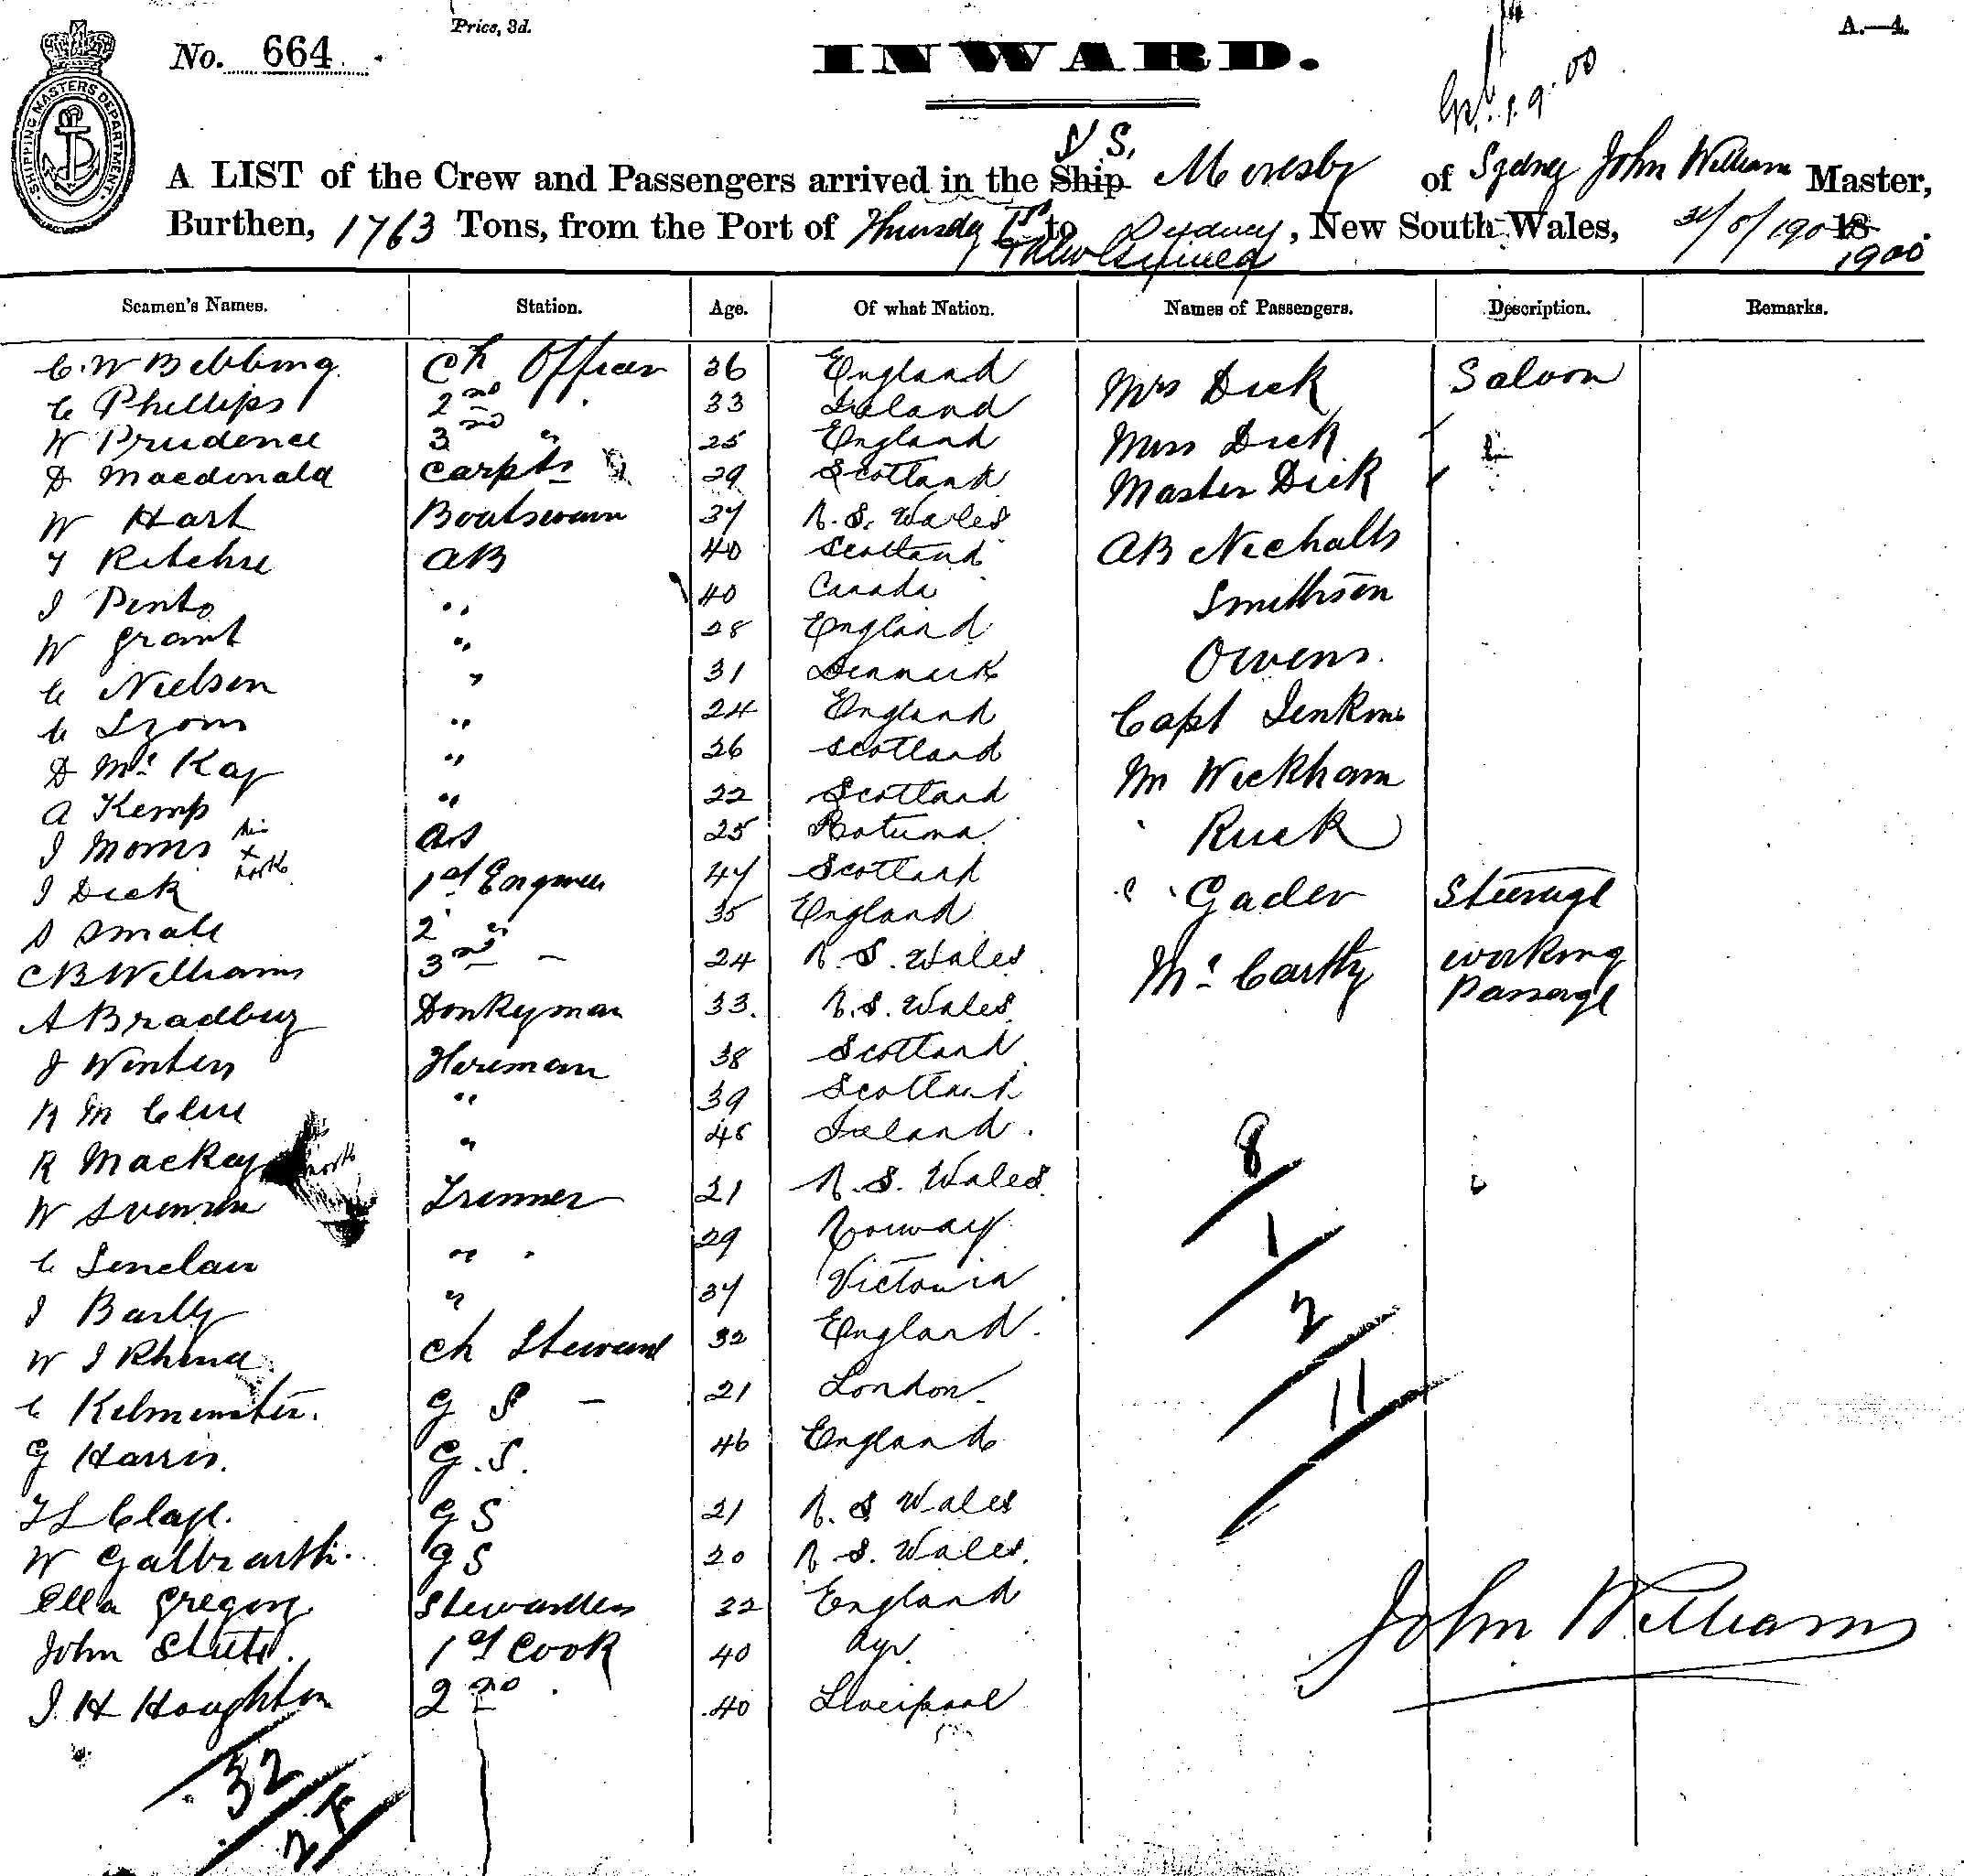 Price, 3d.
A.—4.
No. 664
INWARD.
SHIPPING MASTERS DEPARTMENT
1.9.00
S S.
A LIST of the Crew and Passengers arrived in the Ship Moresby of Sydney John William Master,
Burthen, 1763 Tons, from the Port of Thursday Isd to Sydney, New South Wales, 31/8/190 18
& New Guinea 1900
Seamen's Names. Station. Age. Of what Nation. Names of Passengers. Description. Remarks.
C. W Bebbing Ch Officer 36 England Mrs Dick Saloon
C Phillips 2nd 33 Ireland
W Prudence 3 " 25 England Miss Dick
D Macdonald Carptr 29 Scotland Master Dick
W Hart Boatswain 37 N. S. Wales
T Ritchie AB 40 Scotland AB Nicholls
J Pinto " 40 Canada Smithson
W Grant " 28 England
C Nielsen " 31 Denmark Owens.
C Lyons " 24 England Capt Jenkins
D Mc Kay " 26 Scotland Mr Wickham
A Kemp " 22 Scotland
J Morris his x mark OS 25 Rotuma Ruck
J Dick 1st Engineer 47 Scotland " Gader Steerage
S Small 2 " 35 England
C B Williams 3rd 24 N. S. Wales Mc Carthy working Passage
A Bradbury Donkeyman 33. N. S. Wales
J Winters Fireman 38 Scotland
R M Clure " 39 Scotland
R Mackay mark " 45 Ireland. 8
W Trimmer 21 N. S. Wales
C Sinclair " 29 Norway 1
J Barlly " 37 Victoria
W J Rhind Ch Steward 32 England. 2
C Kilminster. G S - 21 London. 11
G Harris. G. S. 46 England
G S 21 N. S Wales
W Galbraith. G S 20 N. S. Wales.
Ella Gregory Stewardess 32 England
John Shute. 1st Cook 40 Ayr.
J H Houghton 2nd 40 Liverpool
John Williams
32
2 F